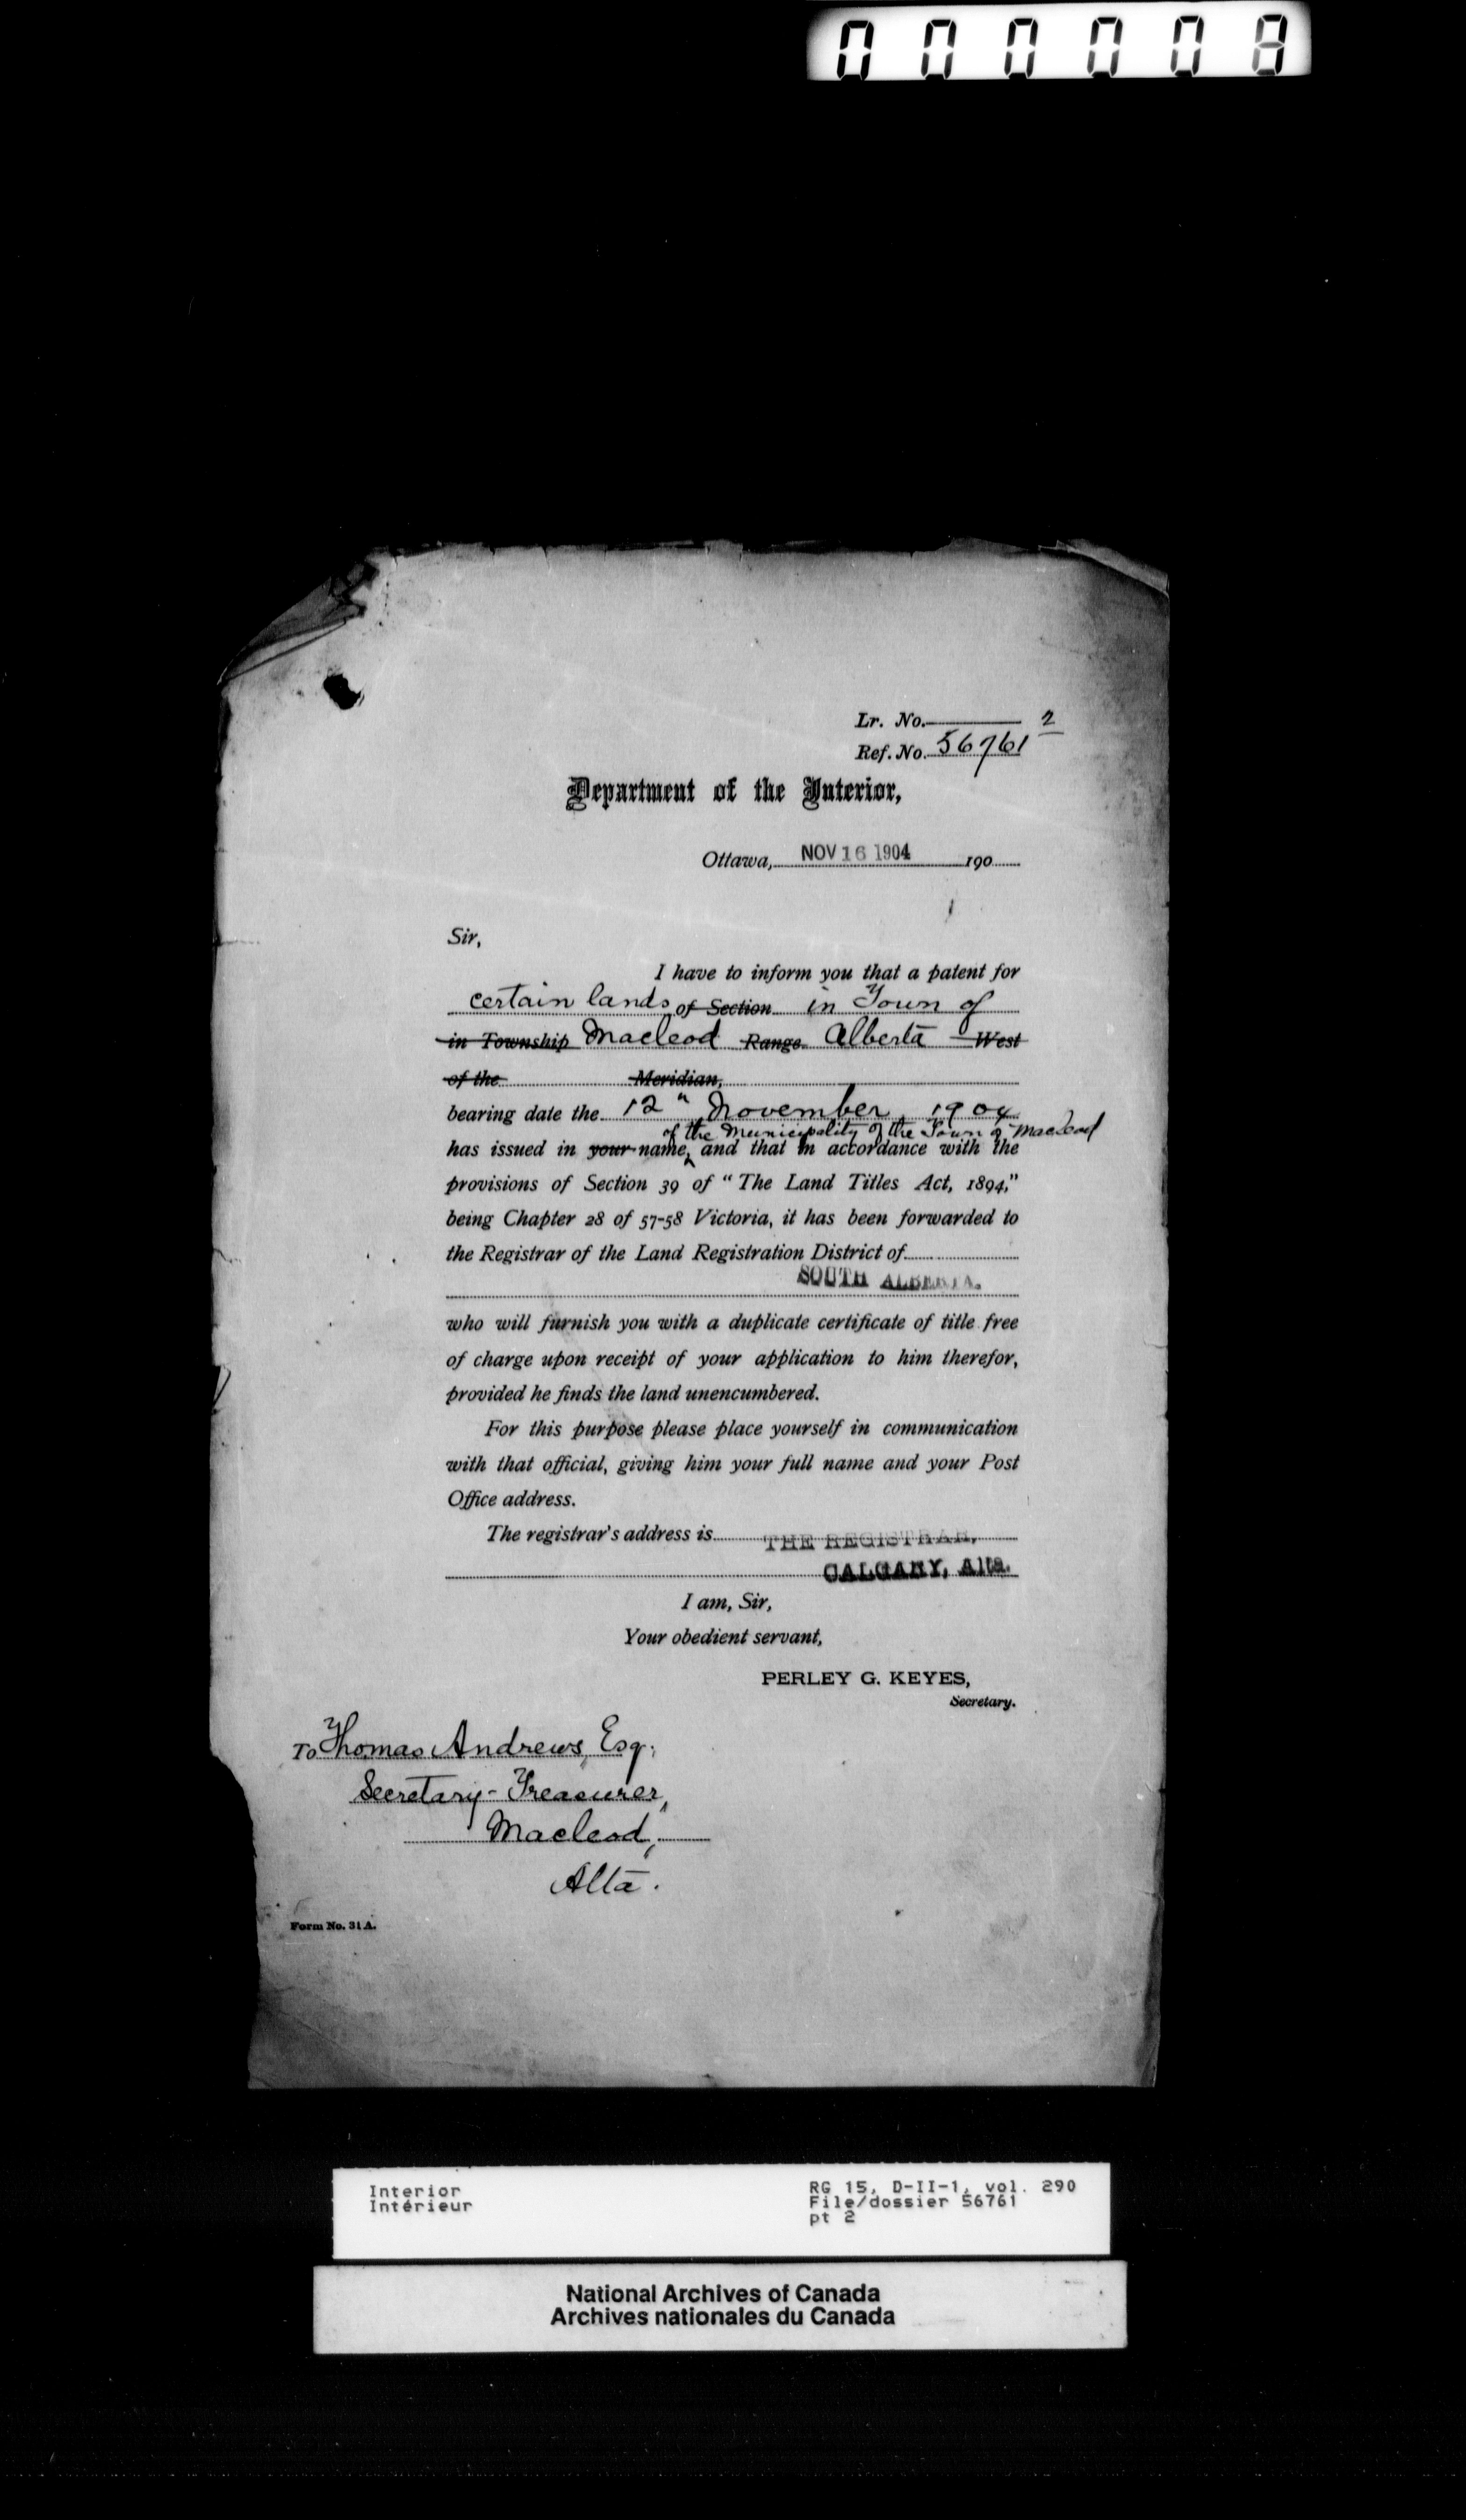 000008
Lr. No. 2
Ref. No. 56761
Department of the Interior,
Ottawa, NOV 16 1904 190
Sir,
I have to inform you that a patent for
certain lands of Section in Town of
in Township Macleod Range Alberta West
of the Meridian,
bearing date the 12" November, 1904
of the Municipality of the Town of Macleod
has issued in your name, and that in accordance with the
provisions of Section 39 of "The Land Titles Act, 1894,"
being Chapter 28 of 57-58 Victoria, it has been forwarded to
the Registrar of the Land Registration District of
SOUTH ALBERTA.
who will furnish you with a duplicate certificate of title free
of charge upon receipt of your application to him therefor,
provided he finds the land unencumbered.
For this purpose please place yourself in communication
with that official, giving him your full name and your Post
Office address.
The registrar's address is THE REGISTRAR,
CALGARY, Alta.
I am, Sir,
Your obedient servant,
PERLEY G. KEYES,
Secretary.
To Thomas Andrews, Esq.,
Secretary-Treasurer,
Macleod,
Alta.
Form No. 31 A.
Interior
Intérieur
RG 15, D-II-1, vol. 290
File/dossier 56761
pt 2
National Archives of Canada
Archives nationales du Canada